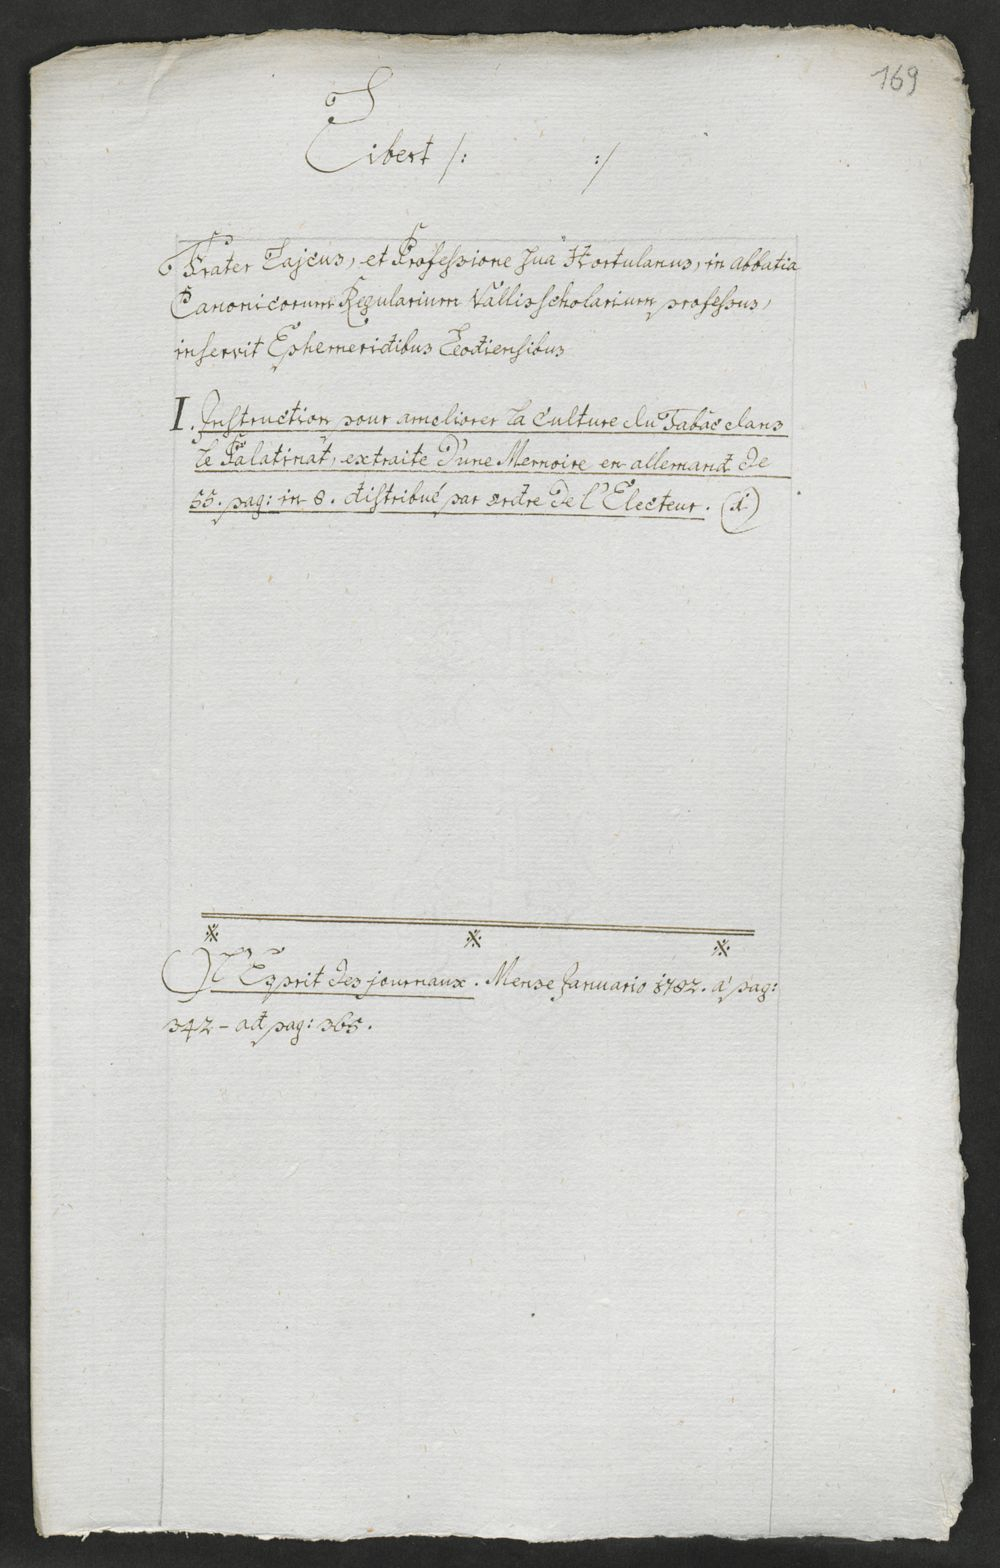 169
Libert /: :/
Frater Lajcus, et Professione sua Hortulanus, in abbatia
Canonicorum Regularium Vallis scholarium professus,
inservit Ephemeridibus Leodiensibus
I. Instruction pour ameliorer La Culture du Tabac dans
Le Palatinat, extraite D'une Memoire en allemand de
55. pag: in 8. distribué par ordre De l'Electeur. (1)
* * *
(1) L'Esprit des journaux. Mense Januario 1782. a pag:
342 - ad pag: 365.